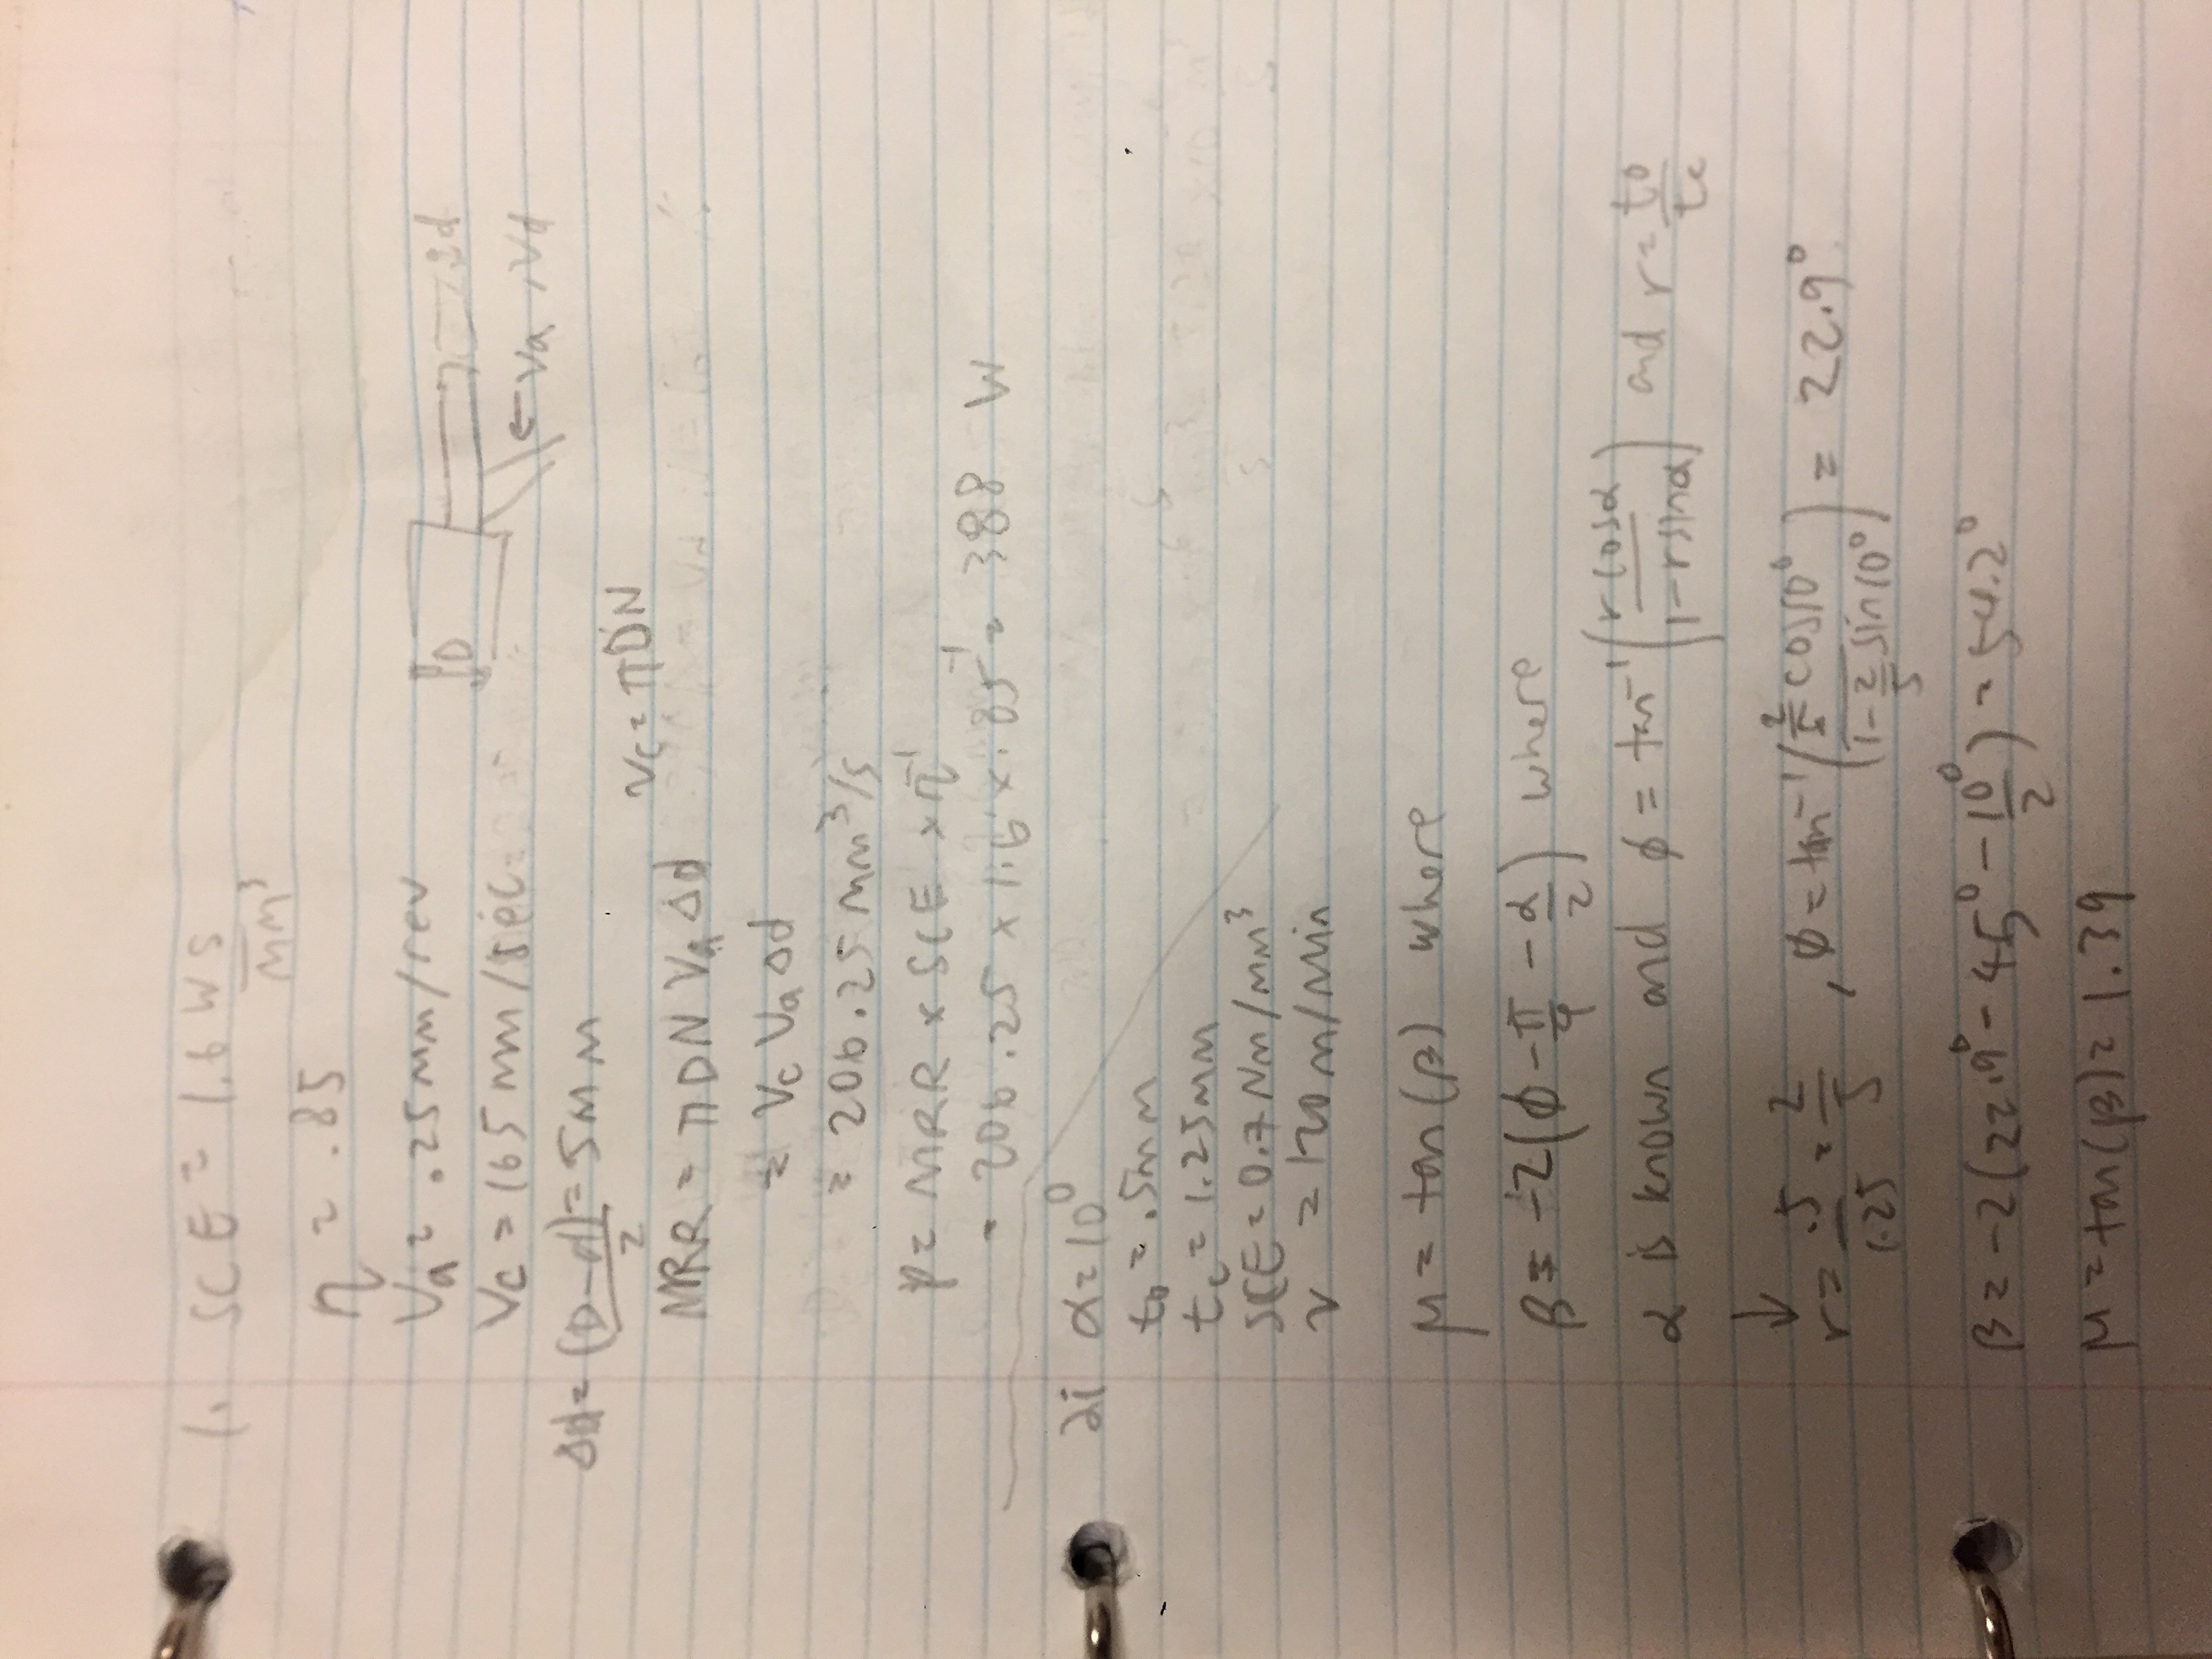 1. SCE = 1.6 WS/mm³
η = .85
Va = .25mm/rev
Vc = 165 mm/sec
D d
← Va, Vd
Δd = (D-d)/2 = 5mm
Vc = πDN
MRR = πDN Va Δd
= Vc Va Δd
= 206.25 mm³/s
P = MRR × SCE × η⁻¹
= 206.25 × 1.6 × .85⁻¹ = 388 W
2i α = 10°
t₀ = .5mm
tc = 1.25mm
SCE = 0.7 Nm/mm³
v = 120 m/min
μ = tan(β) where
β = -2(φ - π/4 - α/2) where
α is known and φ = tan⁻¹(r cosα/1-rsinα) and r = t₀/tc
↓
r = .5/1.25 = 2/5, φ = tan⁻¹(2/5 cos10°/1-2/5 sin10°) = 22.9°
β = -2(22.9° - 45° - 10°/2) = 54.2°
μ = tan(β) = 1.39